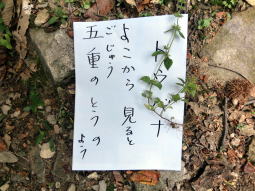 トウバナ
よこから見ると
ごじゅう
五重のとうのよう